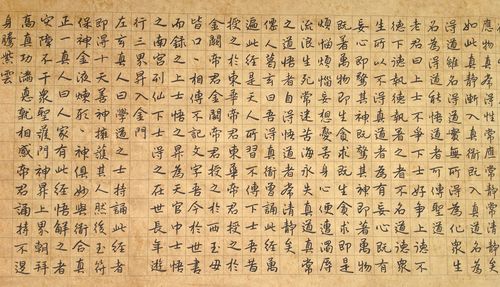 應物真常得性常應常靜常清靜矣
如此真靜漸入真道既入真道名為
得道雖名得道實無所得為化眾生
名為得道能悟之者可傳聖道
老君曰上士不爭下士好爭上德不
德下德執德執著之者不名道德眾
生所以不得真道者為有妄心既有
妄心即驚其神既驚其神即著萬物
既著萬物即生貪求既生貪求即是
煩惱煩惱妄想憂苦身心便遭濁辱
流浪生死常沉苦海永失真道真常
之道悟者自得得悟道者常清靜矣
僊人葛翁曰吾得真道曾誦此經萬
遍此經是天人所習不傳下士吾昔
授之於東華帝君東華帝君授之於
金闕帝君金闕帝君授之於西王母
皆口口相傳不記文字吾今於世書
而錄之上士悟之昇為天官中士悟
之南宮列仙下士得之在世長年遊
行三界昇入金門
左玄真人曰學道之士持誦此經者
即得十天善神擁護其人然後玉符
保神金液煉形形神俱妙與道合真
正一真人曰人家有此經悟解之者
災障不干眾聖護門神昇上界朝拜
高真功滿德就相感帝君誦持不退
身騰紫雲